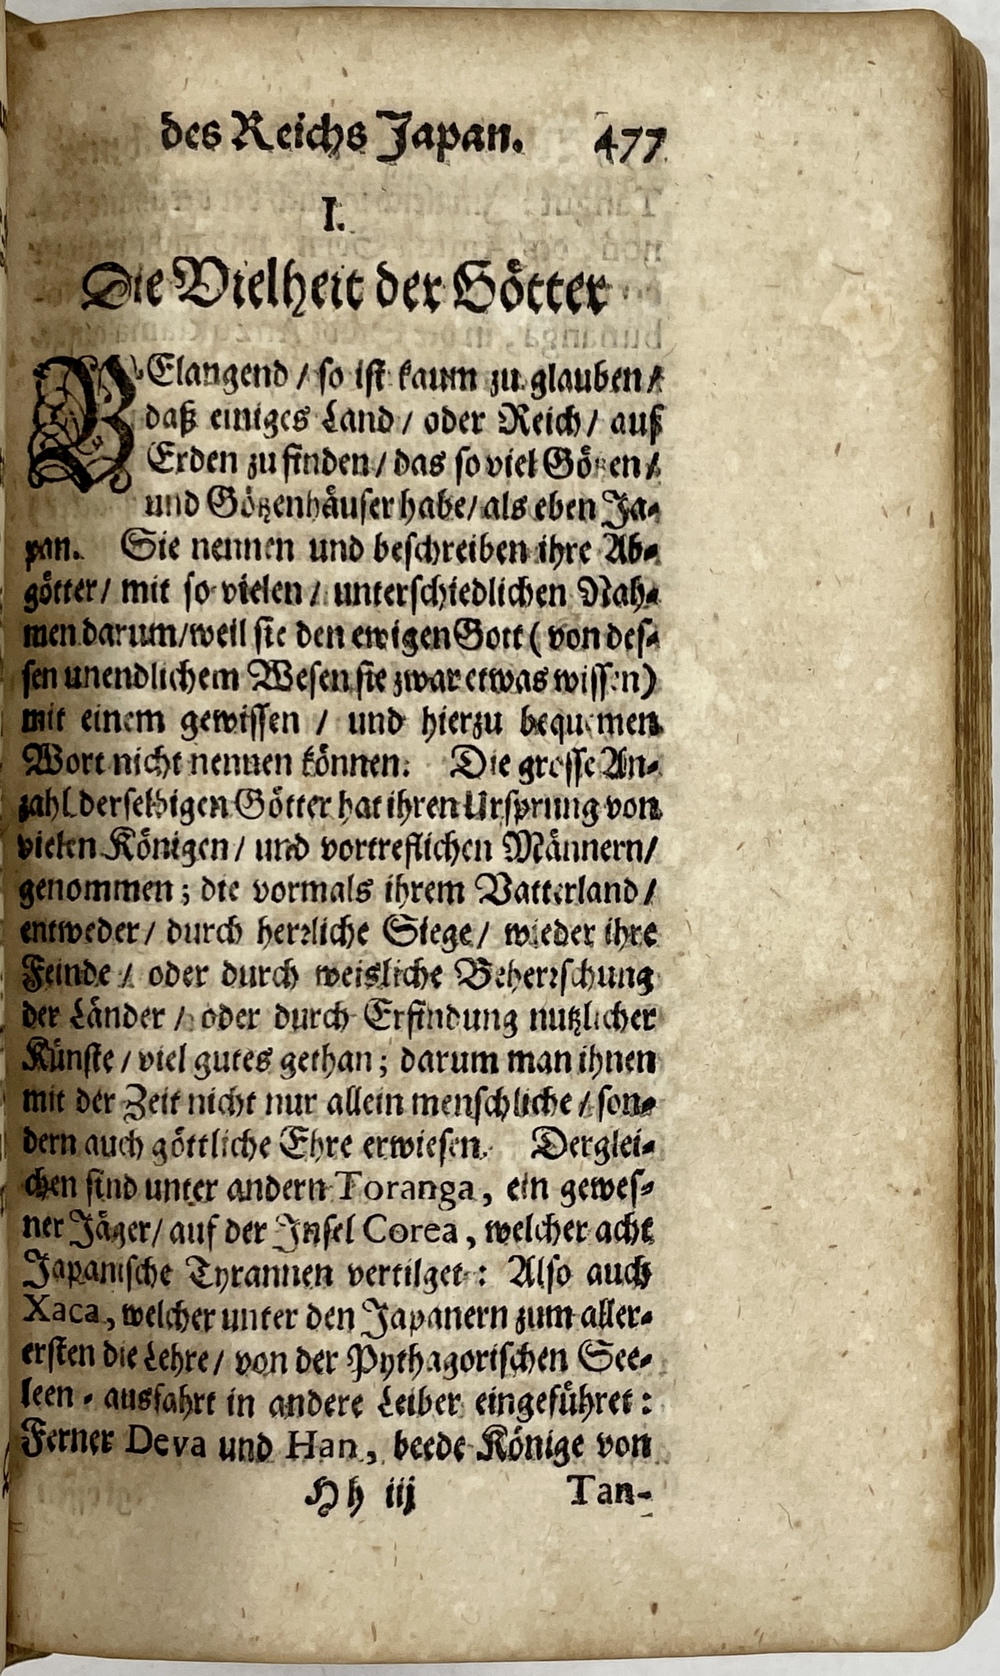 des Reichs Japan. 477
I.
Die Vielheit der Götter
BElangend / so ist kaum zu glauben /
daß einiges Land / oder Reich / auf
Erden zu finden / das so viel Götzen /
und Götzenhäuser habe / als eben Ja-
pan. Sie nennen und beschreiben ihre Ab-
götter / mit so vielen / unterschiedlichen Nah-
men darum / weil sie den ewigen Gott ( von des-
sen unendlichem Wesen sie zwar etwas wissen)
mit einem gewissen / und hierzu bequemen
Wort nicht nennen können. Die grosse An-
zahl derselbigen Götter hat ihren Ursprung von
vielen Königen / und vortreflichen Männern /
genommen ; die vormals ihrem Vatterland /
entweder / durch herrliche Siege / wieder ihre
Feinde / oder durch weisliche Beherrschung
der Länder / oder durch Erfindung nutzlicher
Künste / viel gutes gethan ; darum man ihnen
mit der Zeit nicht nur allein menschliche / son-
dern auch göttliche Ehre erwiesen. Derglei-
chen sind unter andern Toranga, ein gewes-
ner Jäger / auf der Insel Corea, welcher acht
Japanische Tyrannen vertilget : Also auch
Xaca, welcher unter den Japanern zum aller-
ersten die Lehre / von der Pythagorischen See-
leen - ausfahrt in andere Leiber eingeführet :
Ferner Deva und Han, beede Könige von
Hh iij Tan-